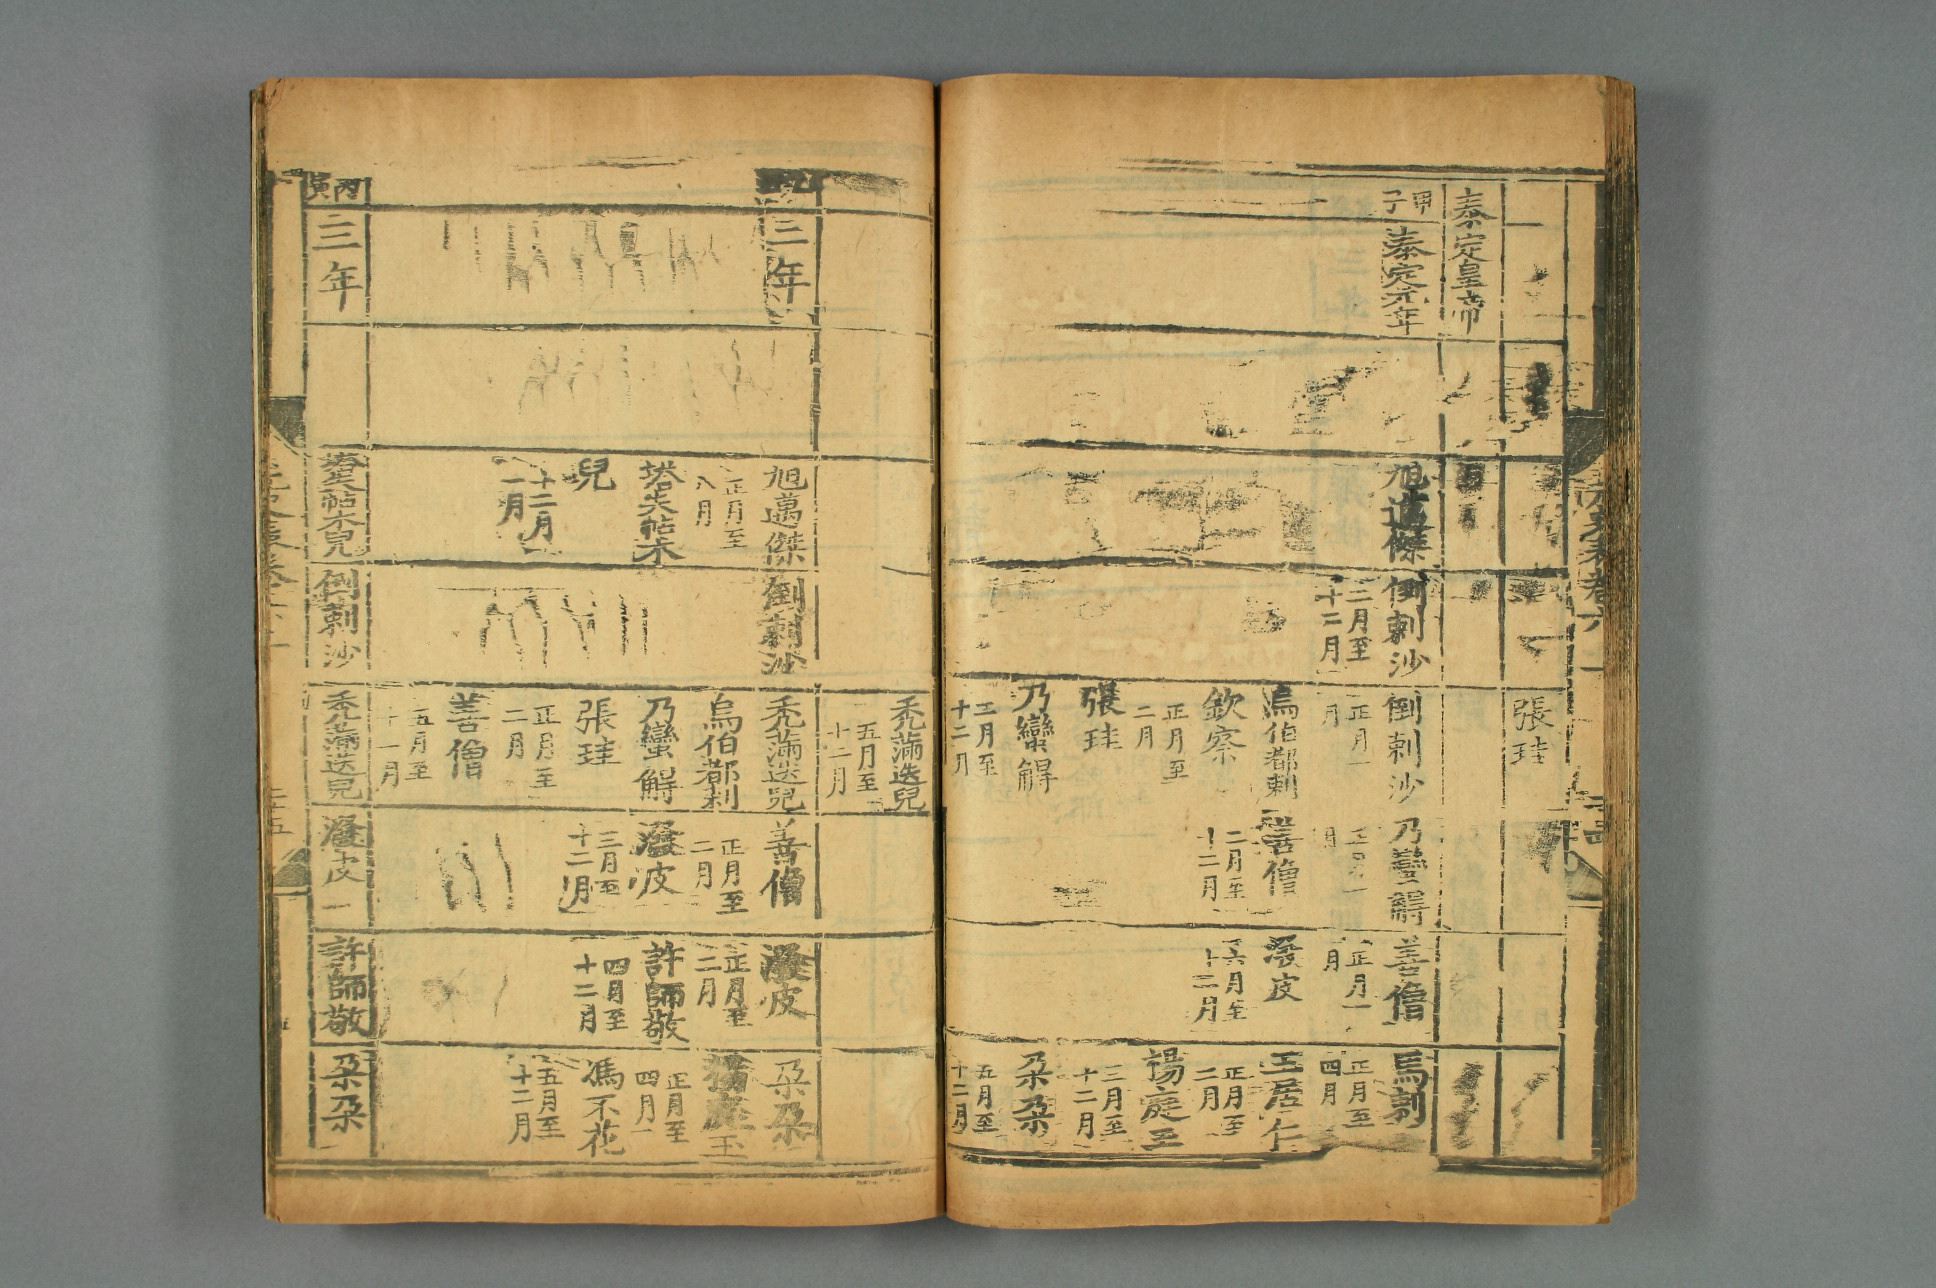 張珪
泰定皇帝
甲子
泰定元年
旭邁傑
倒剌沙
二月至
十二月
倒剌沙
正月
月
烏伯都剌
欽察
正月至
二月
張珪
乃蠻䚟
三月至
十二月
禿滿迭兒
五月至
十二月
乃蠻䚟
正月
月
善僧
二月至
十二月
善僧
正月
月
潑皮
六月至
十二月
馬剌
正月至
四月
王居仁
正月至
二月
楊庭玉
三月至
十二月
朶朶
五月至
十二月
年
旭邁傑
正月至
八月
塔失帖木
兒
十二月
一月
倒剌沙
禿滿迭兒
烏伯都剌
乃蠻䚟
張珪
正月至
二月
善僧
五月至
十一月
善僧
正月至
二月
潑皮
三月至
十二月
潑皮
正月至
二月
許師敬
四月至
十二月
朶朶
楊庭玉
正月至
四月
馮不花
五月至
十二月
丙寅
三年
塔失帖木兒
倒剌沙
禿滿迭兒
潑皮
許師敬
朶朶